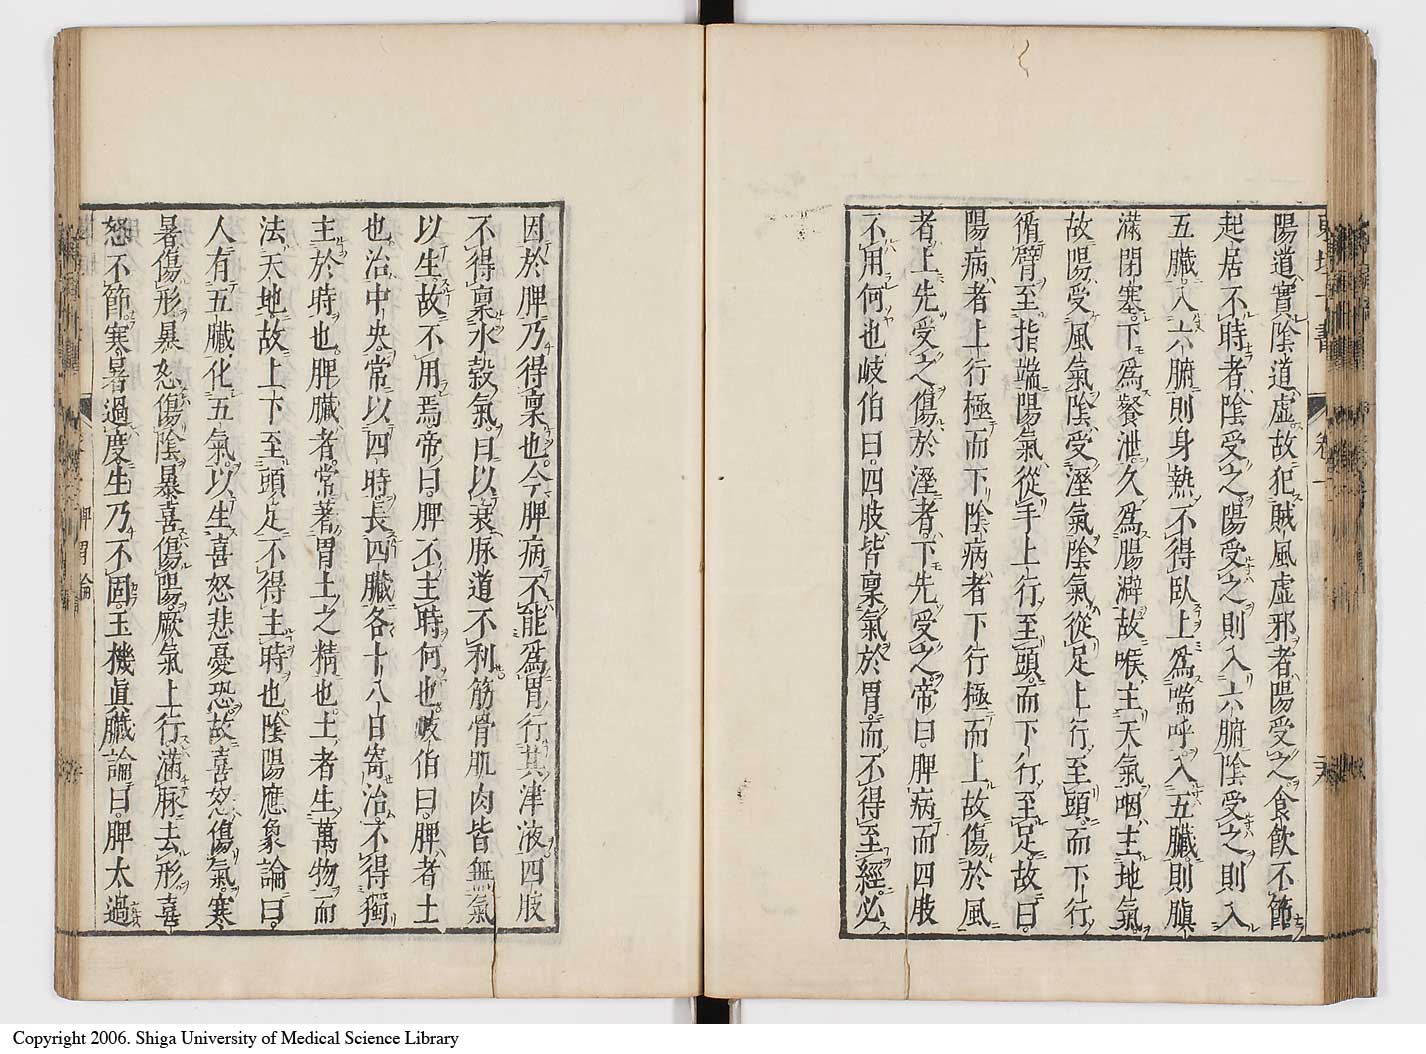 陽道實陰道虛故犯賊風虛邪者陽受之食飮不節
起居不時者陰受之陽受之則入六腑陰受之則入
五臟入六腑則身熱不得臥上爲喘呼入五臟則䐜
滿閉塞下爲飱泄久爲腸澼故喉主天氣咽主地氣
故陽受風氣陰受溼氣陰氣從足上行至頭而下行
循臂至指端陽氣從手上行至頭而下行至足故曰
陽病者上行極而下陰病者下行極而上故傷於風
者上先受之傷於溼者下先受之帝曰脾病而四肢
不用何也岐伯曰四肢皆稟氣於胃而不得至經必
因於脾乃得稟也今脾病不能爲胃行其津液四肢
不得稟水穀氣日以衰脉道不利筋骨肌肉皆無氣
以生故不用焉帝曰脾不主時何也岐伯曰脾者土
也治中央常以四時長四臟各十八日寄治不得獨
主於時也脾臟者常著胃土之精也土者生萬物而
法天地故上下至頭足不得主時也陰陽應象論曰
人有五臟化五氣以生喜怒悲憂恐故喜怒傷氣寒
暑傷形暴怒傷陰暴喜傷陽厥氣上行滿脉去形喜
怒不節寒暑過度生乃不固玉機眞臟論曰脾太過
脾胃論
Copyright 2006. Shiga University of Medical Science Library